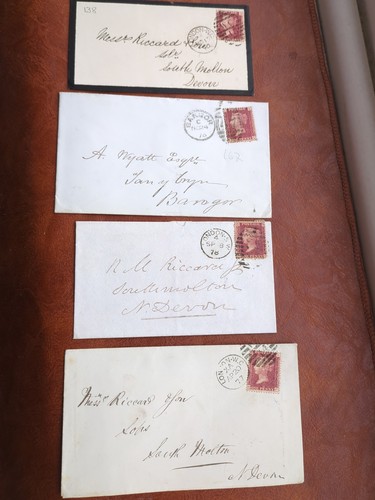 138
Messrs Riccard & Son
Solrs
South Molton
Devon
LONDON-W
BANGOR
C
78
A. Wyatt Esqre
Tanybryn
Bangor
162
LONDON-N.W
4
SP 8
78
R M Riccard Jr
Southmolton
N. Devon
LONDON-W.C
77
Messrs Riccard & Son
Solrs
South Molton
N Devon